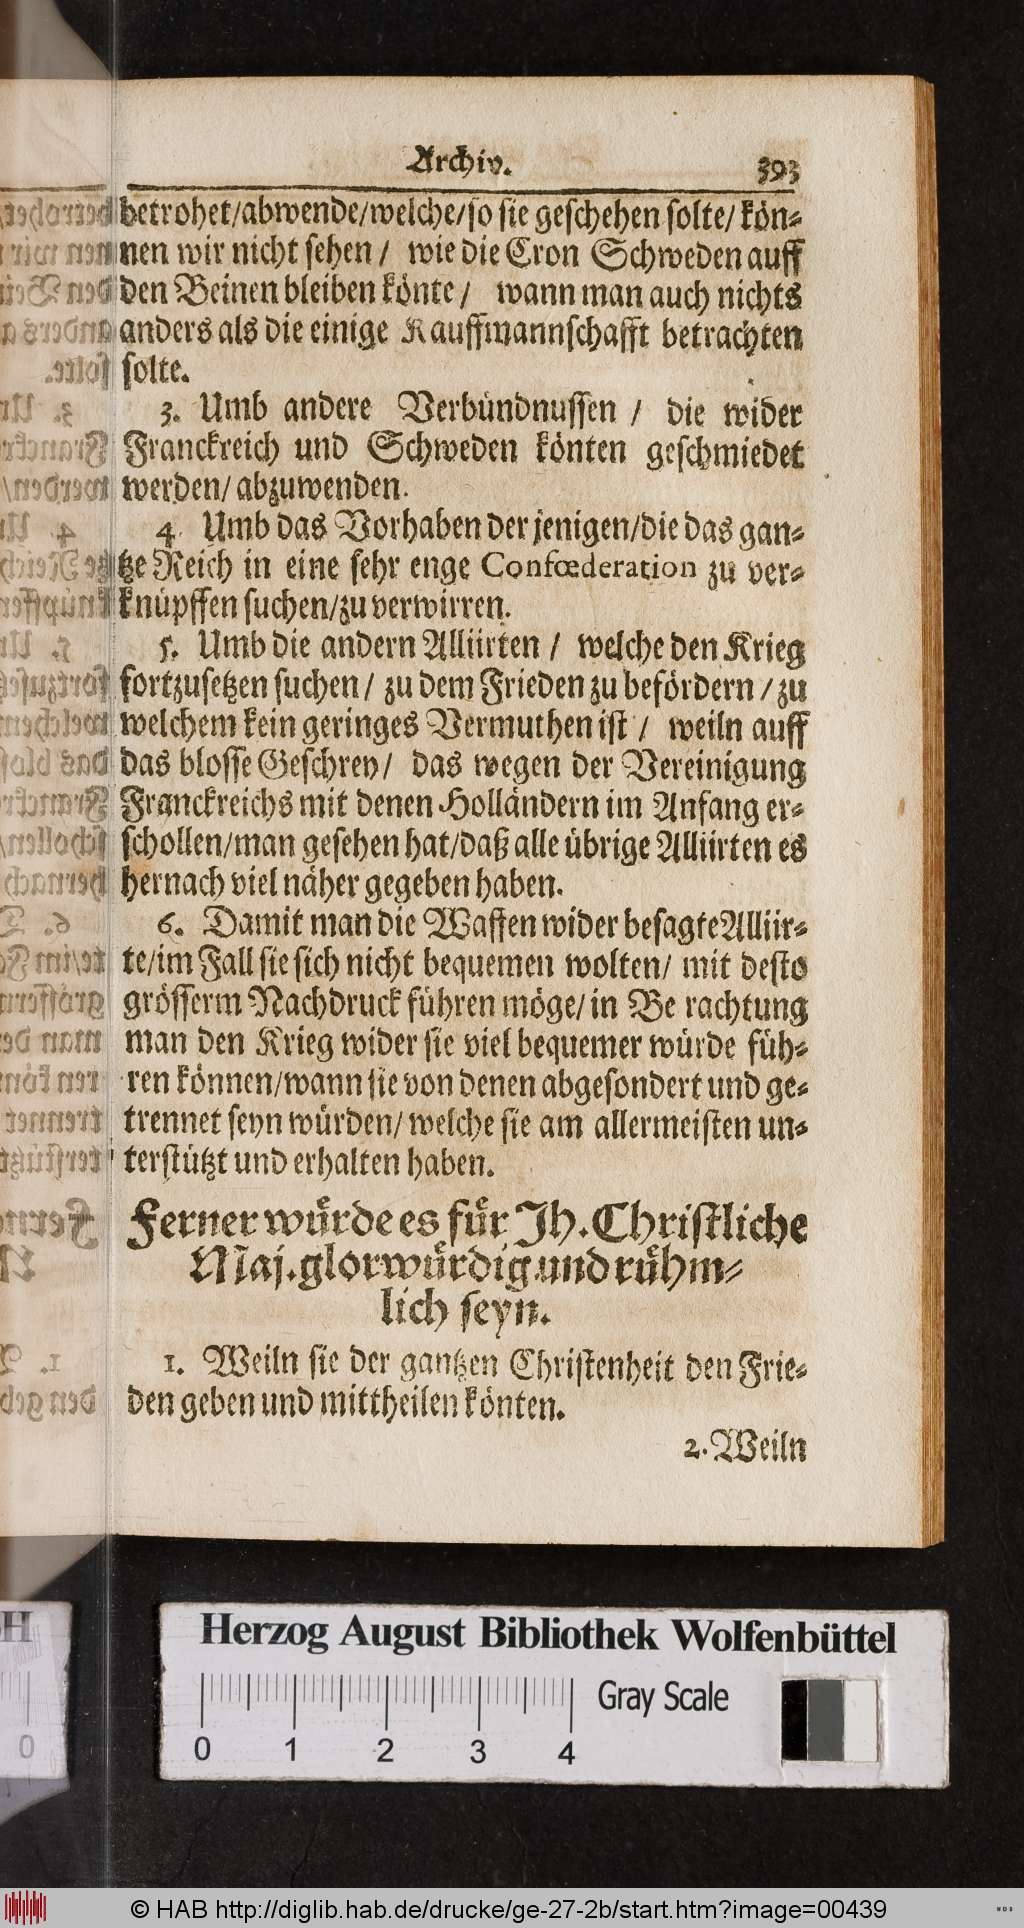 Archiv. 393
betrohet/abwende/welche/so sie geschehen solte/ kön-
nen wir nicht sehen / wie die Cron Schweden auff
den Beinen bleiben könte / wann man auch nichts
anders als die einige Kauffmannschafft betrachten
solte.
3. Umb andere Verbündnussen / die wider
Franckreich und Schweden könten geschmiedet
werden/ abzuwenden.
4. Umb das Vorhaben der jenigen/die das gan-
tze Reich in eine sehr enge Confœderation zu ver-
knüpffen suchen/zu verwirren.
5. Umb die andern Alliirten / welche den Krieg
fortzusetzen suchen / zu dem Frieden zu befördern / zu
welchem kein geringes Vermuthen ist / weiln auff
das blosse Geschrey/ das wegen der Vereinigung
Franckreichs mit denen Holländern im Anfang er-
schollen/man gesehen hat/daß alle übrige Alliirten es
hernach viel näher gegeben haben.
6. Damit man die Waffen wider besagte Alliir-
te/im Fall sie sich nicht bequemen wolten/ mit desto
grösserm Nachdruck führen möge/ in Be rachtung
man den Krieg wider sie viel bequemer würde füh-
ren können/wann sie von denen abgesondert und ge-
trennet seyn würden/ welche sie am allermeisten un-
terstützt und erhalten haben.
Ferner würde es für Jh. Christliche
Maj. glorwürdig und rühm-
lich seyn.
1. Weiln sie der gantzen Christenheit den Frie-
den geben und mittheilen könten.
2. Weiln
Herzog August Bibliothek Wolfenbüttel
Gray Scale
0 1 2 3 4
© HAB http://diglib.hab.de/drucke/ge-27-2b/start.htm?image=00439